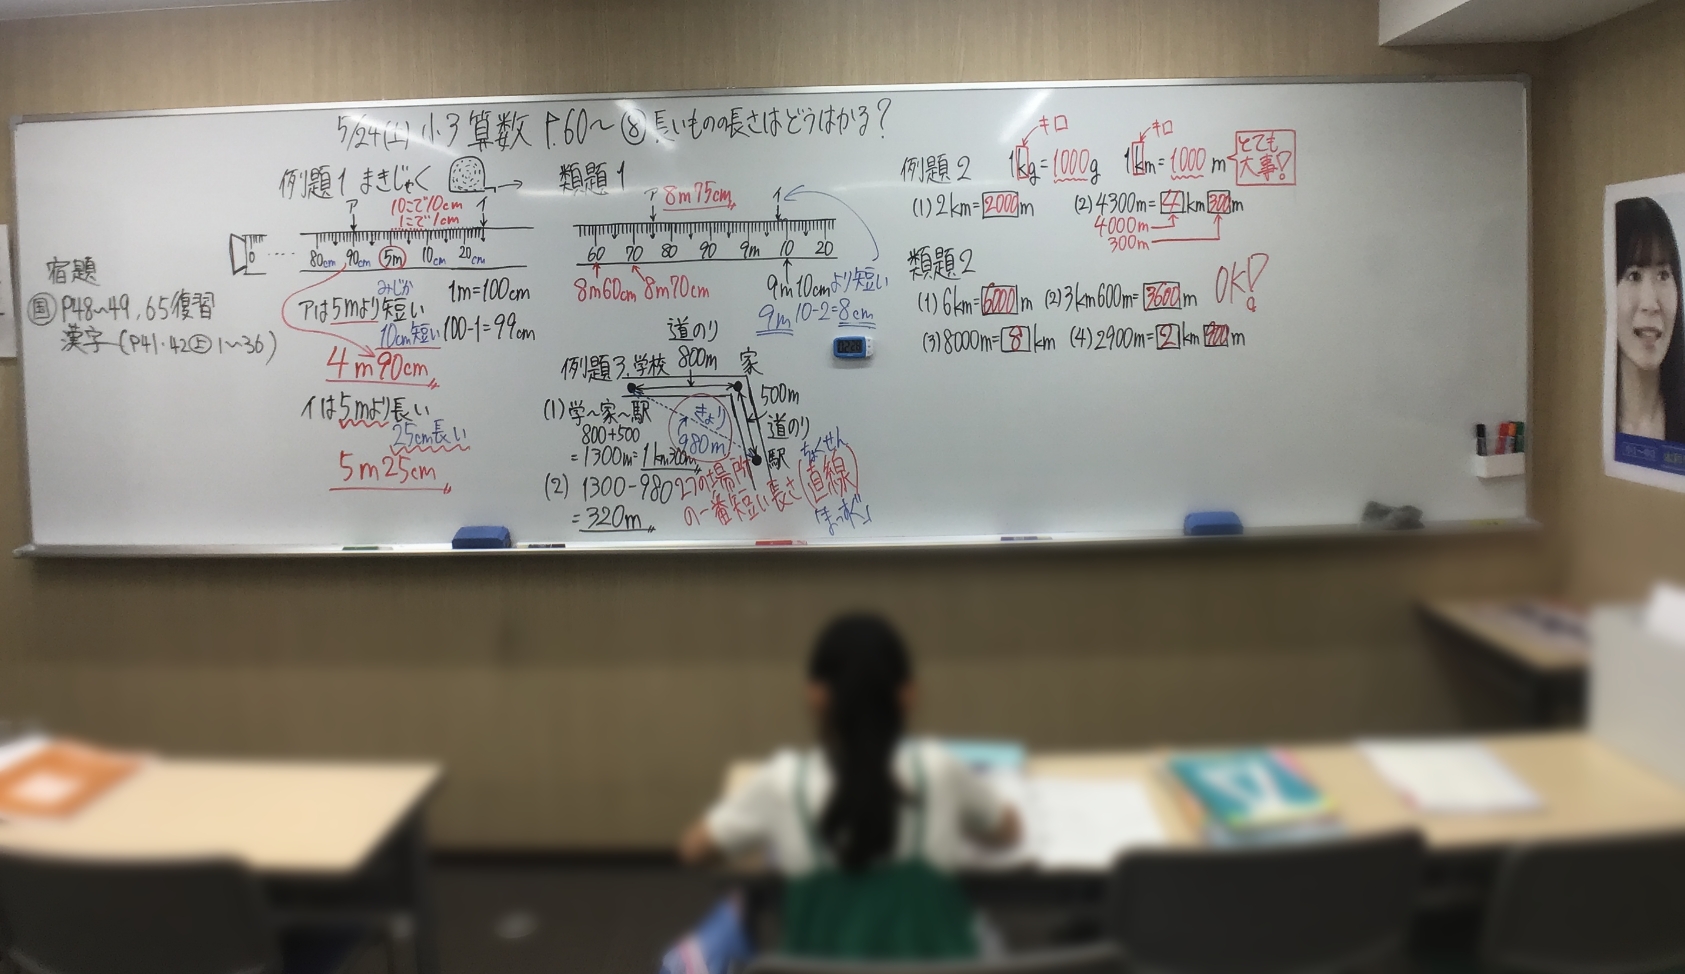 5/24(土) 小3 算数 P.60～ ⑧ 長いものの長さはどうはかる？
宿題
国 P48～49, 65復習
漢字 (P41・42㊤ 1～36)
例題1 まきじゃく
10こで10cm
1こで1cm
ア イ
0 ‥‥ 80cm 90cm 5m 10cm 20cm
みじか
アは5mより短い
10cm短い
1m=100cm
100-1=99cm
4m90cm
イは5mより長い
25cm長い
5m25cm
類題1
ア 8m75cm イ
60 70 80 90 9m 10 20
8m60cm 8m70cm
9m10cmより短い
9m 10-2=8cm
例題3.
道のり
学校 800m 家
500m
道のり
駅
きょり
980m
(1)学～家～駅
800+500
=1300m=1km300m
(2) 1300-980
=320m
2つの場所
の一番短い長さ
ちょくせん
直線
まっすぐ
例題2
キロ
1kg=1000g
キロ
1km=1000m
とても
大事!
(1)2km=2000m
(2)4300m=4km300m
4000m
300m
類題2
(1)6km=6000m (2)3km600m=3600m
(3)8000m=8km (4)2900m=2km900m
OK!